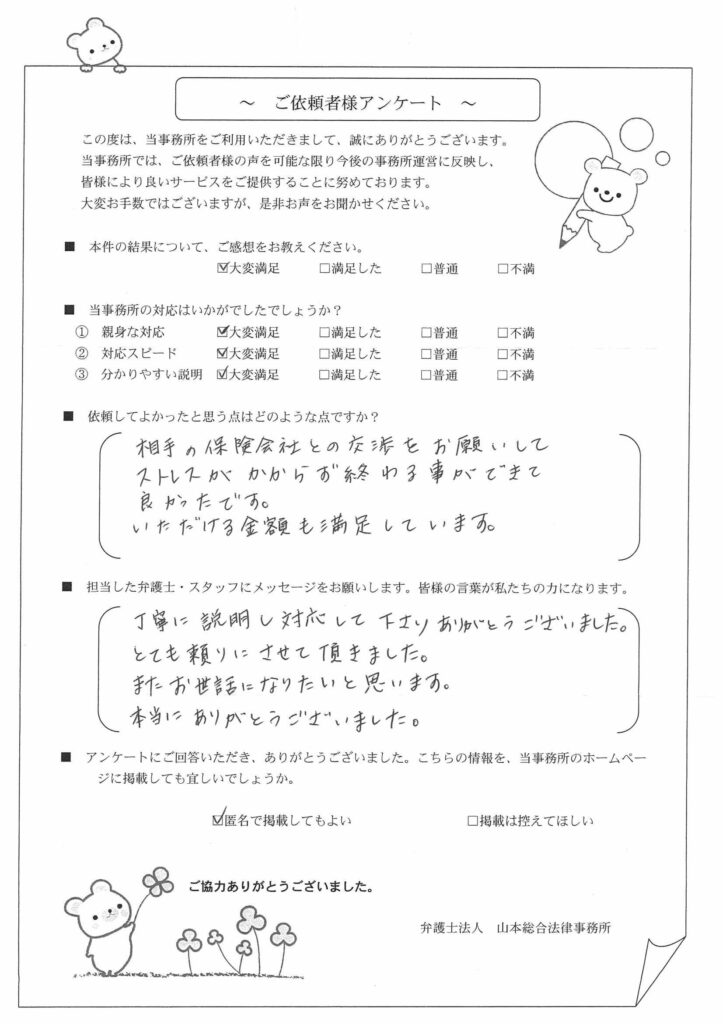 ～　ご依頼者様アンケート　～
この度は、当事務所をご利用いただきまして、誠にありがとうございます。
当事務所では、ご依頼者様の声を可能な限り今後の事務所運営に反映し、
皆様により良いサービスをご提供することに努めております。
大変お手数ではございますが、是非お声をお聞かせください。
■　本件の結果について、ご感想をお教えください。
☑大変満足　□満足した　□普通　□不満
■　当事務所の対応はいかがでしたでしょうか？
①　親身な対応　☑大変満足　□満足した　□普通　□不満
②　対応スピード　☑大変満足　□満足した　□普通　□不満
③　分かりやすい説明　☑大変満足　□満足した　□普通　□不満
■　依頼してよかったと思う点はどのような点ですか？
相手の保険会社との交渉をお願いして
ストレスがかからず終わる事ができて
良かったです。
いただける金額も満足しています。
■　担当した弁護士・スタッフにメッセージをお願いします。皆様の言葉が私たちの力になります。
丁寧に説明し対応して下さりありがとうございました。
とても頼りにさせて頂きました。
またお世話になりたいと思います。
本当にありがとうございました。
■　アンケートにご回答いただき、ありがとうございました。こちらの情報を、当事務所のホームペー
ジに掲載しても宜しいでしょうか。
☑匿名で掲載してもよい　□掲載は控えてほしい
ご協力ありがとうございました。
弁護士法人　山本総合法律事務所